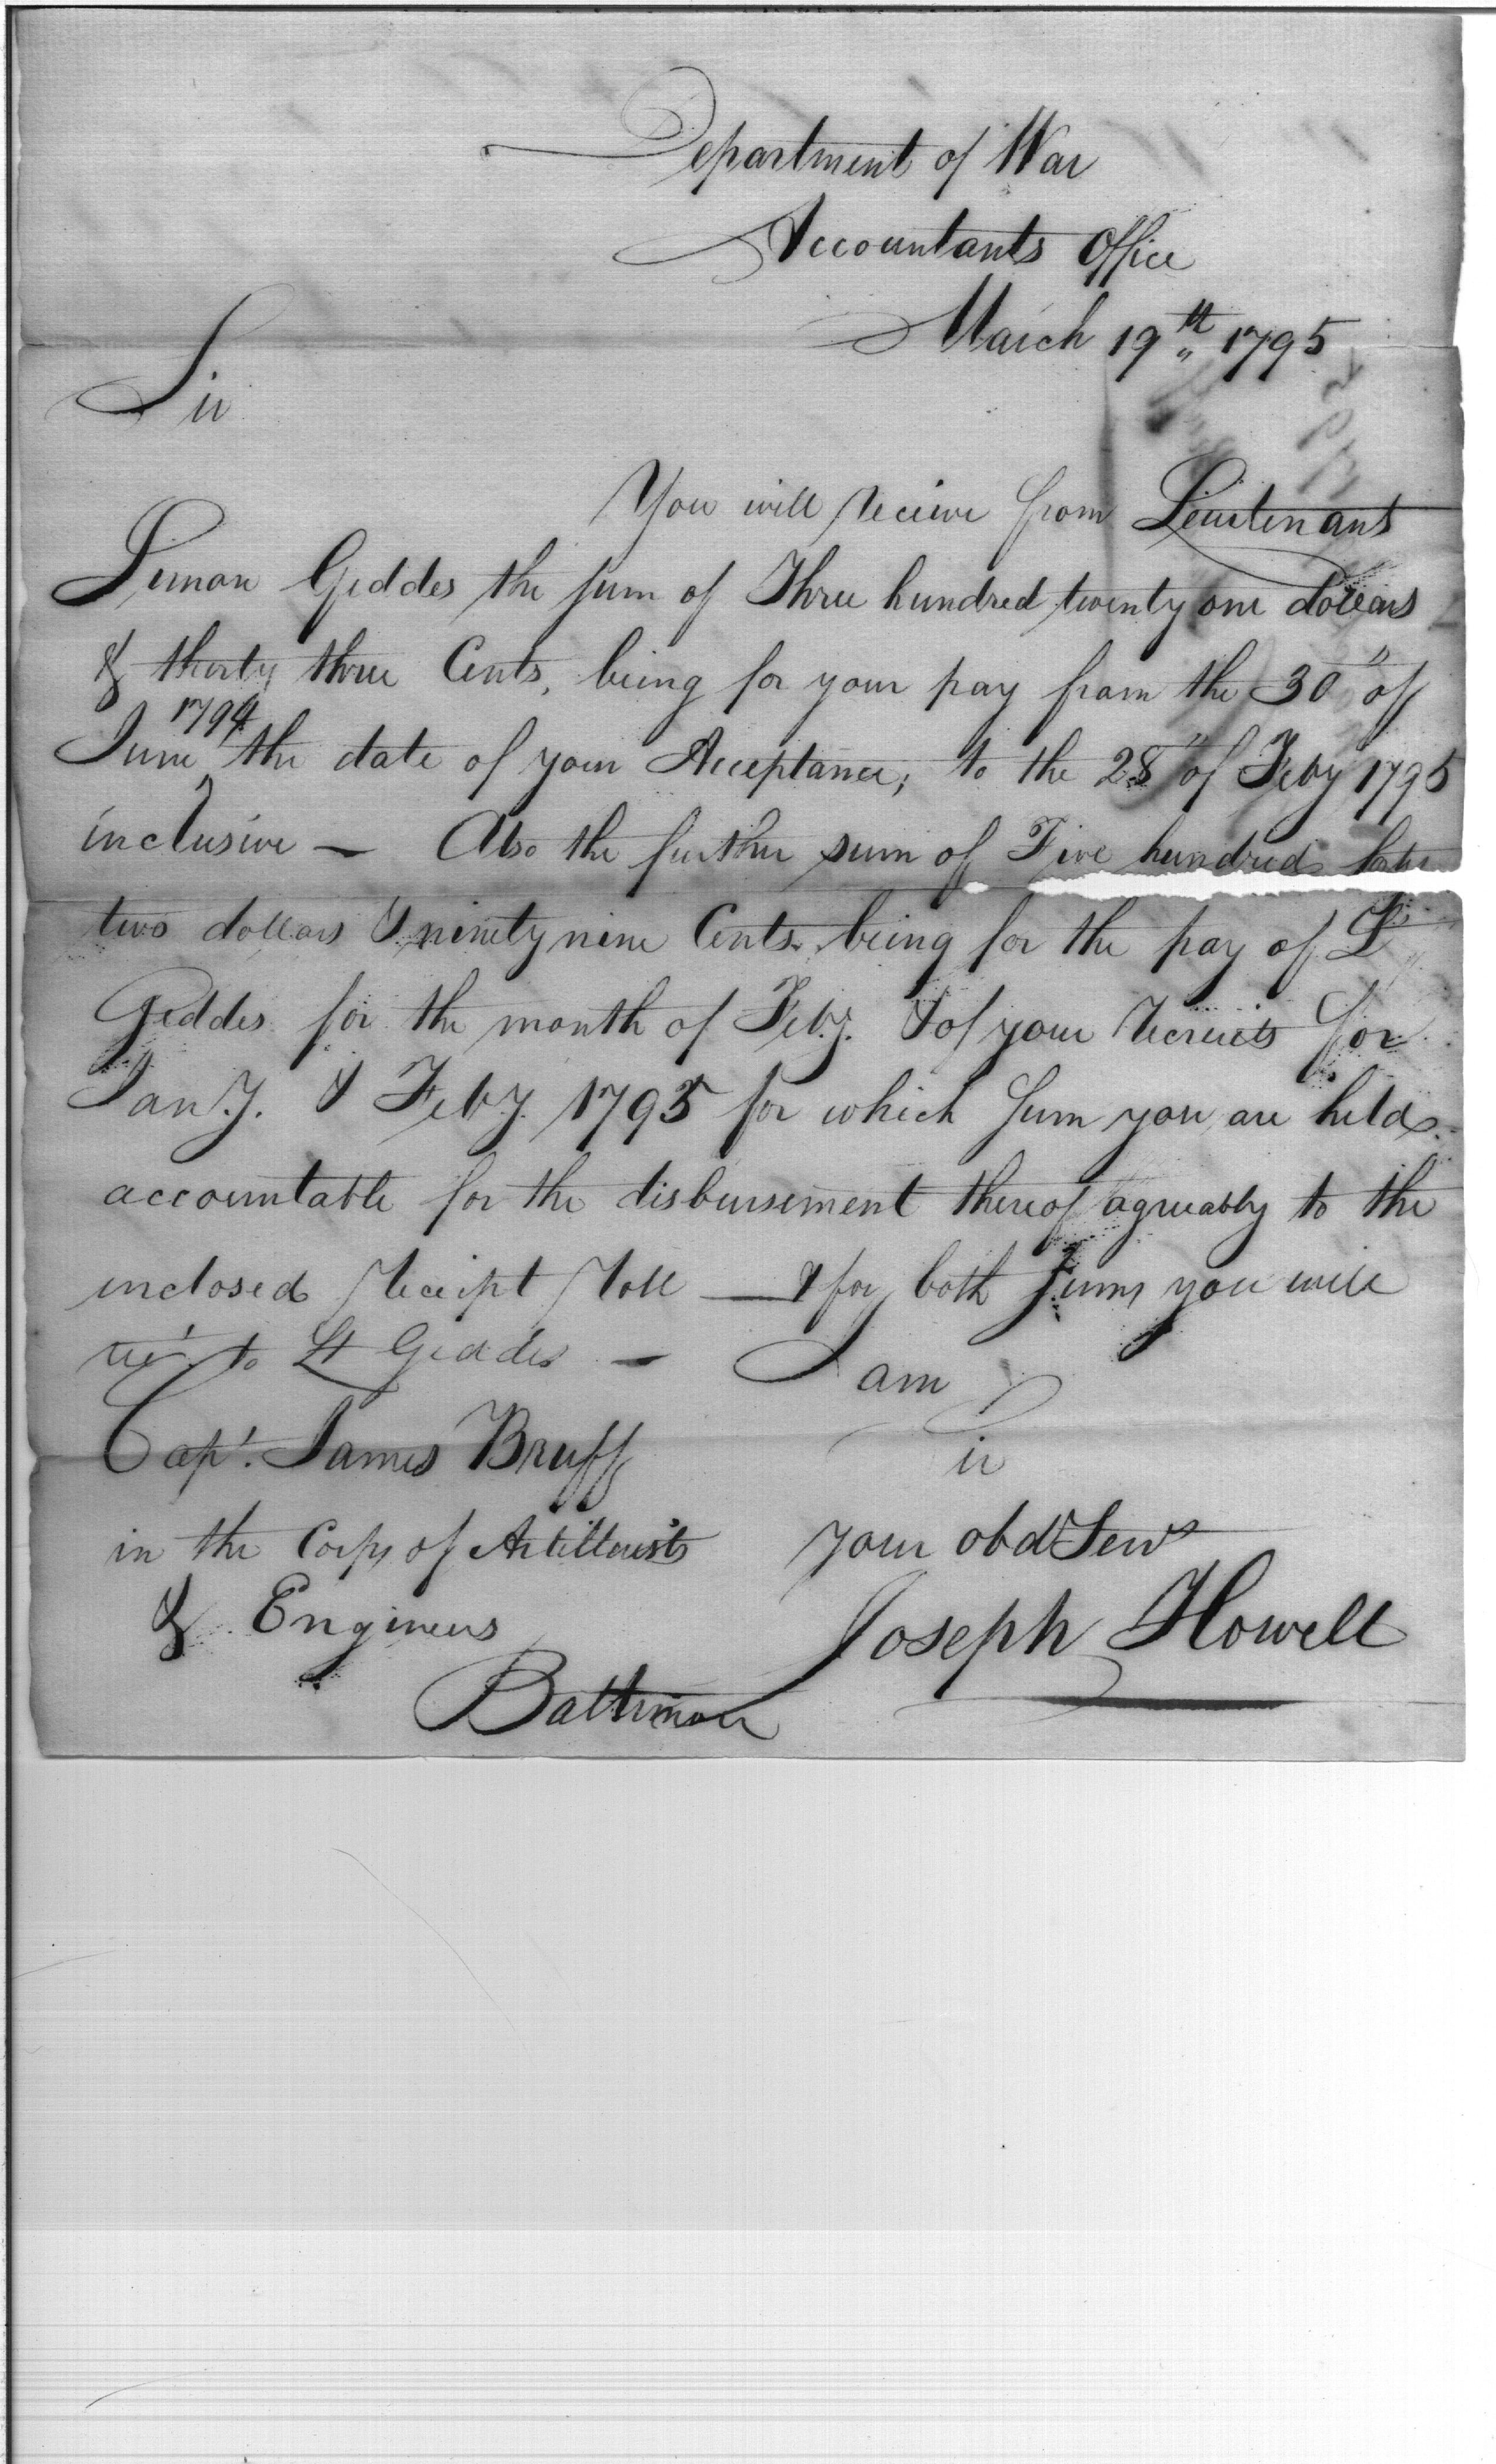 Department of War
Accountants Office
March 19th 1795
Sir
You will receive from Lieutenant
Simon Geddes the sum of Three hundred twenty one dollars
& thirty three Cents, being for your pay from the 30" of
1794
June the date of your Acceptance; to the 28" of Feby 1795
inclusive — Also the further sum of Five hundred forty
two dollars & ninety nine Cents being for the pay of Lt
Geddes for the month of Feby. & of your Recruits for
Jany. & Feby. 1795 for which sum you are held
accountable for the disbursement thereof agreeably to the
inclosed Receipt Roll — & for both sums you will
to Lt Geddes — I am
Sir
Capt. James Bruff
in the Corps of Artillerists your obd Serv
& Engineers Joseph Howell
Baltimore